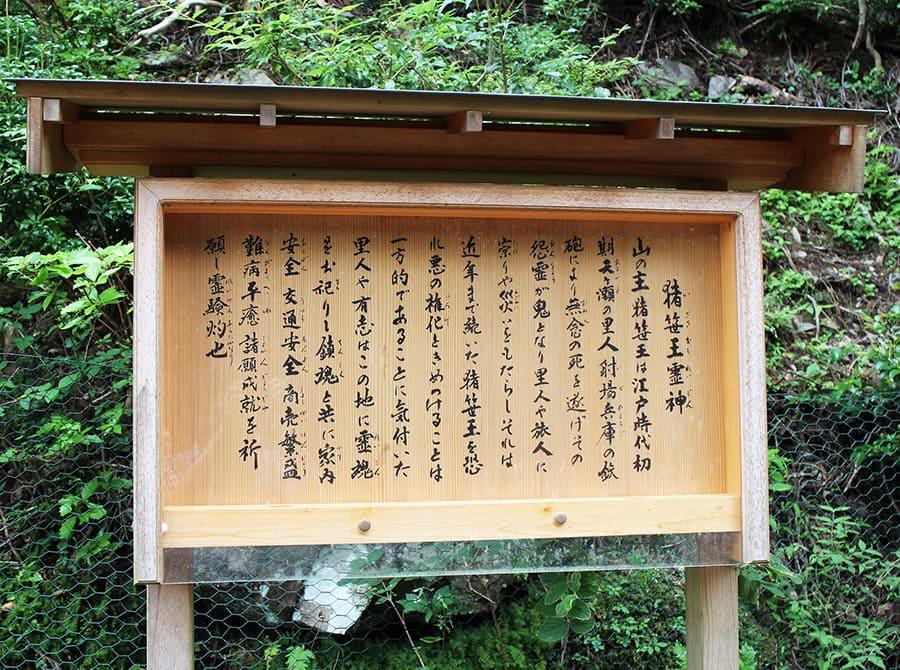 猪笹王霊神
山の主猪笹王は江戸時代初
期天ヶ瀬の里人射場兵庫の鉄
砲により無念の死を遂げその
怨霊が鬼となり里人や旅人に
祟りや災いをもたらしそれは
近年まで続いた猪笹王を恐
れ悪の権化ときめつけることは
一方的であることに気付いた
里人や有志はこの地に霊魂
をお祀りし鎮魂と共に家内
安全交通安全商売繁盛
難病平癒諸願成就を祈
願し霊験灼也